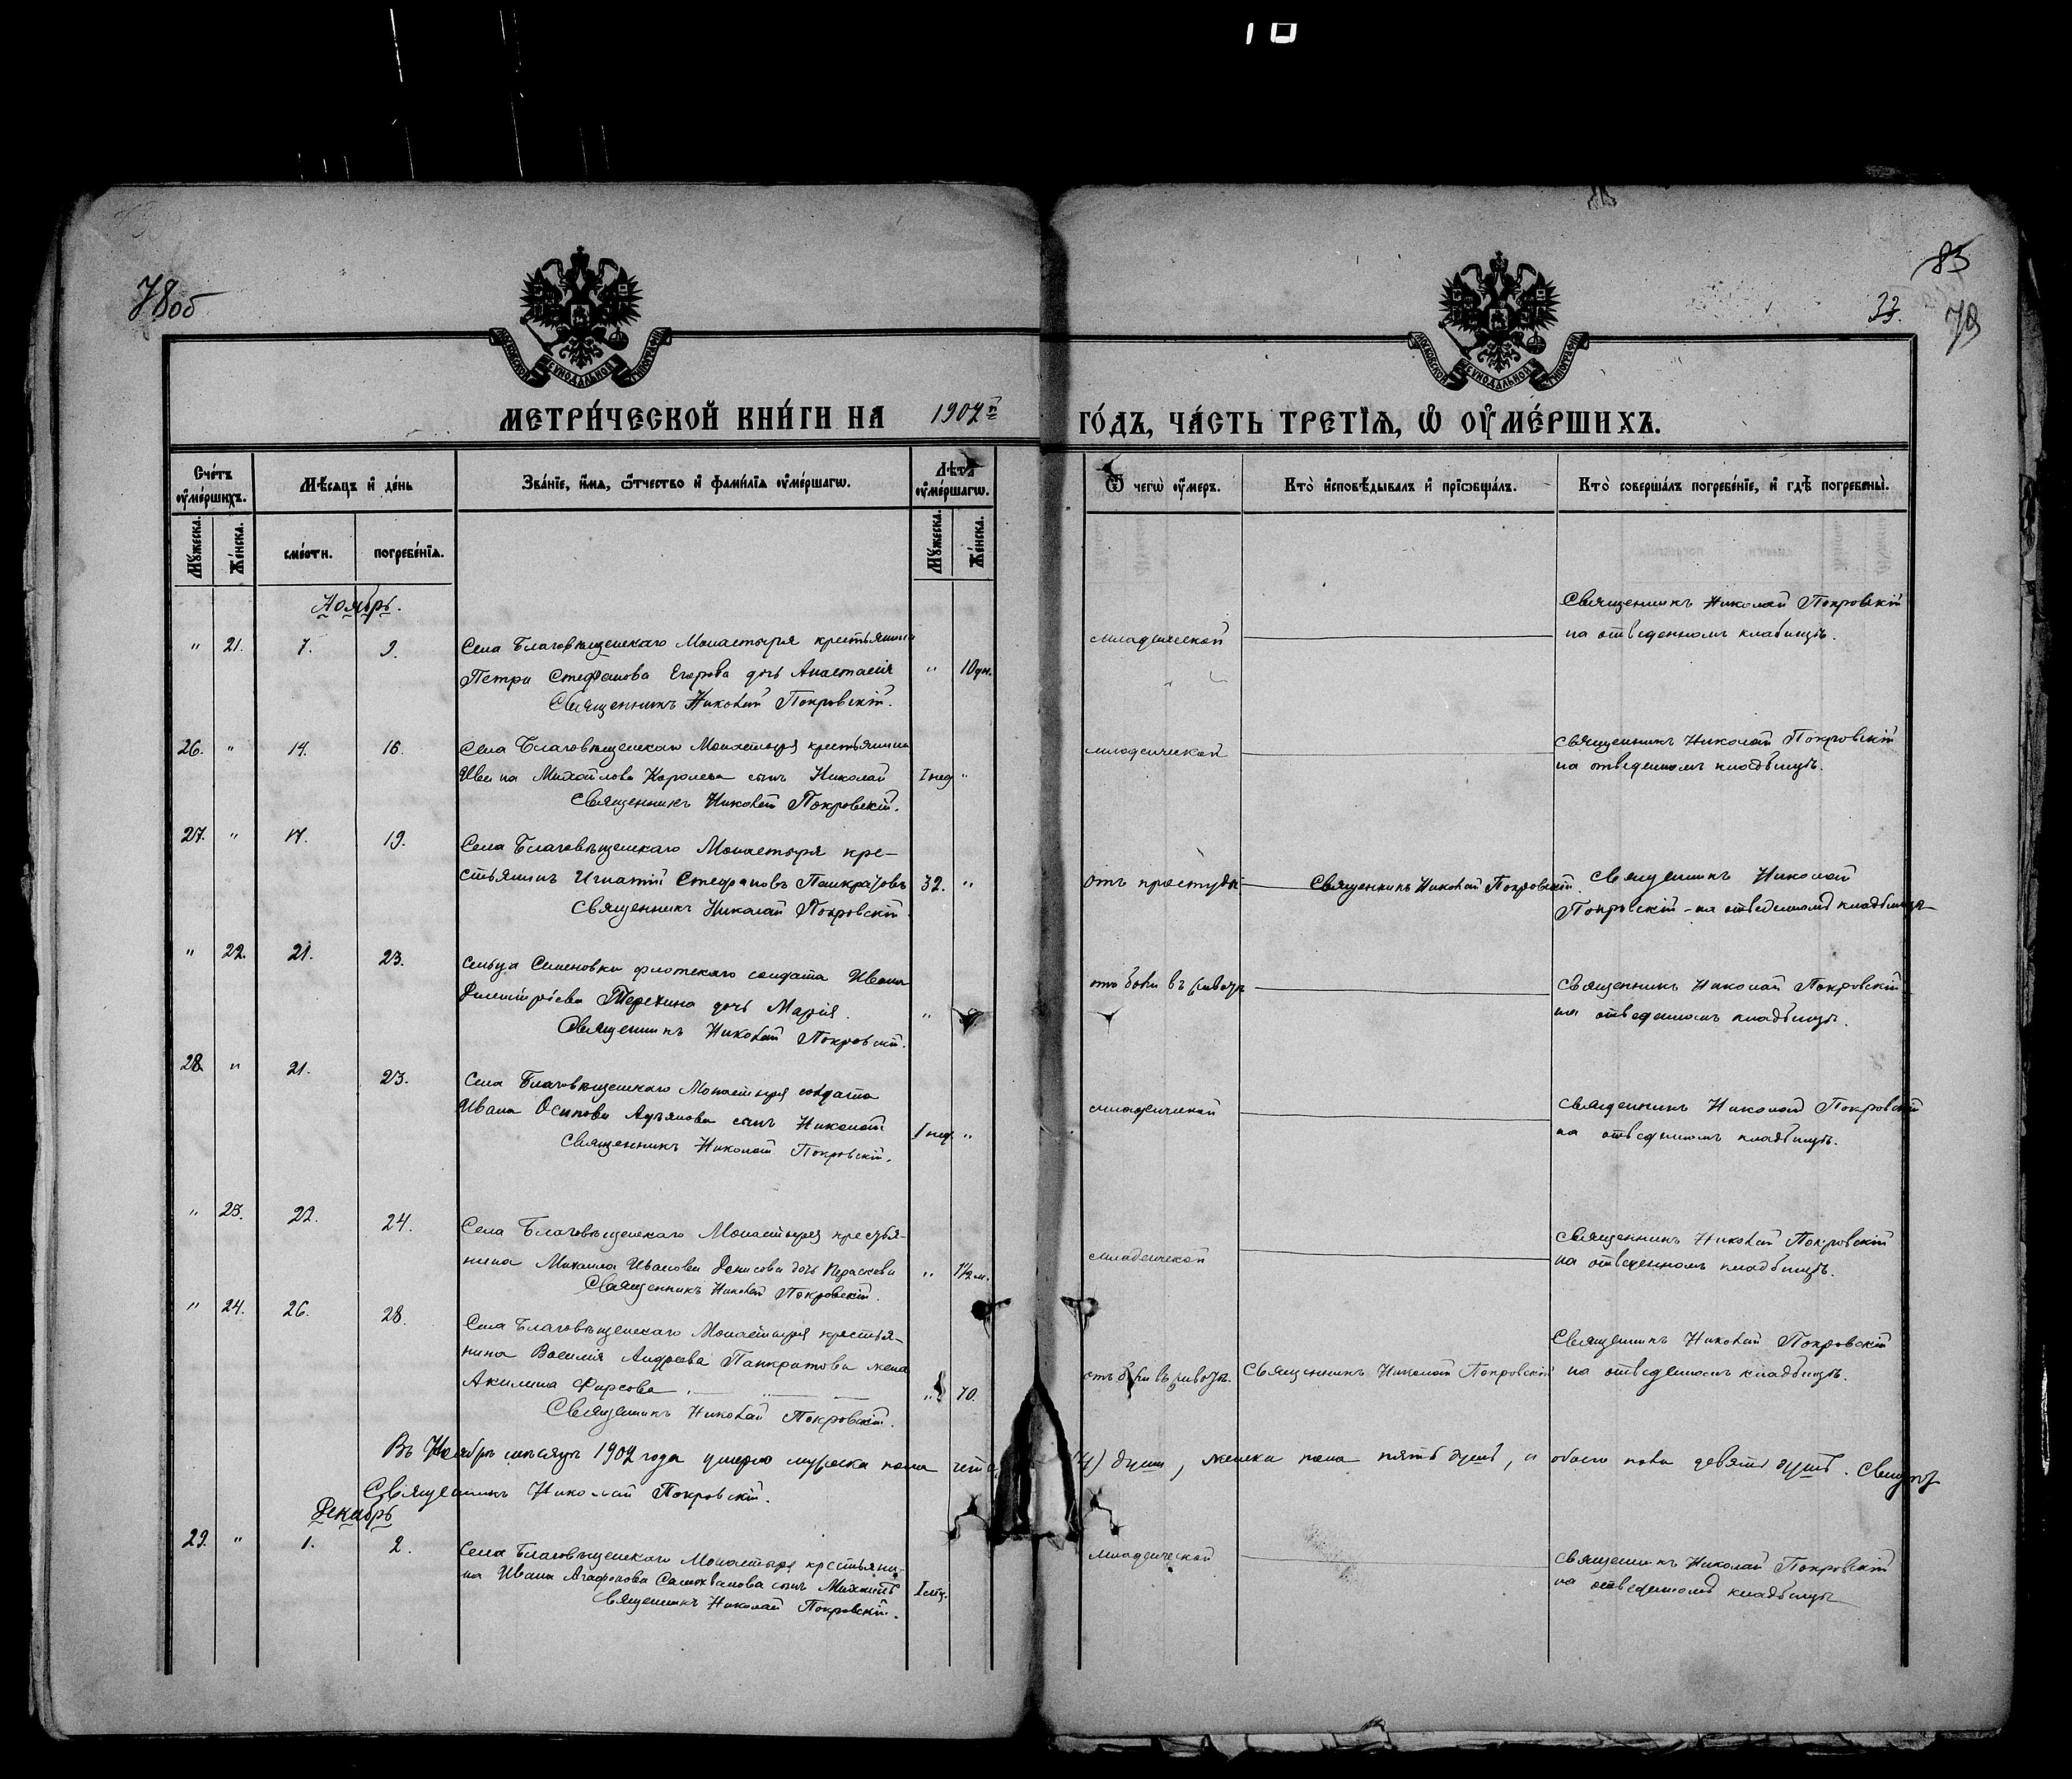 10
78об
83
33.
79
МОСКОВСКОЙ СѴНОДАЛЬНОЙ ТИПОГРАФІИ
МОСКОВСКОЙ СѴНОДАЛЬНОЙ ТИПОГРАФІИ
МЕТРИ́ЧЕСКОЙ КНИ́ГИ НА 1902й ГО́ДЪ, ЧА́СТЬ ТРЕТІѦ, Ѡ ОУМЕ́РШИХЪ.
Сче́тъ оумершихъ.
Мѣсяцъ и де́нь
Зва́ніе, и́мя, ѿчество и фами́лія оуме́ршагѡ.
Лѣта оуме́ршагѡ.
Ѿ чегѡ оумеръ.
Кто̀ исповѣдывалъ и пріѡбща́лъ.
Кто̀ соверша́лъ погребе́ніе, и гдѣ погребены̀.
Мꙋжеска.
Же́нска.
сме́рти.
погребе́нія.
Мꙋжеска.
Же́нска.
Ноябрь.
" 21. 7. 9. Села Благовѣщенскаго Монастыря крестьянина
Петра Стефанова Егорова дочь Анастасія " 10 дн.
Священникъ Николай Покровскій.
младенческой
Священникъ Николай Покровскій
на отведенномъ клабищѣ.
26. " 14. 16. Села Благовѣщенскаго Монастыря крестьянина
Ивана Михайлова Королева сынъ Николай 1 нед "
Священникъ Николай Покровскій.
младенческой
Священникъ Николай Покровскій
на отведенномъ кладбищѣ.
27. " 17. 19. Села Благовѣщенскаго Монастыря кре-
стьянинъ Игнатій Стефановъ Панкратовъ 32. "
Священникъ Николай Покровскій
отъ простуды
Священникъ Николай Покровскій.
Священникъ Николай
Покровскій - на отведенномъ кладбищѣ
" 22. 21. 23. Сельца Семеновки флотскаго солдата Ивана
Димитріева Терехина дочь Марія. "
Священникъ Николай Покровскій.
Священникъ Николай Покровскій
на отведенномъ кладбищѣ.
28. " 21. 23. Села Благовѣщенскаго Монастыря солдата
Ивана Осипова сынъ Николай 1 нед "
Священникъ Николай Покровскій.
младенческой
Священникъ Николай Покровскій
на отведенномъ кладбищѣ.
" 23. 22. 24. Села Благовѣщенскаго Монастыря крестья-
нина Михаила Иванова Денисова дочь Параскева " 1½ м.
Священникъ Николай Покровскій.
младенческой
Священникъ Николай Покровскій
на отведенномъ кладбищѣ.
" 24. 26. 28. Села Благовѣщенскаго Монастыря крестья-
нина Василія Андреева Панкратова жена
Акилина Фирсова " 70.
Священникъ Николай Покровскій.
Священникъ Николай Покровскій
Священникъ Николай Покровскій
на отведенномъ кладбищѣ.
Въ Ноябрѣ мѣсяцѣ 1902 года умерло мужска пола (4) души, женска пола пять душъ, и обоего пола девять душъ.
Священникъ Николай Покровскій.
Декабрь
29. " 1. 2. Села Благовѣщенскаго Монастыря крестьяни-
на Ивана Агафонова Самохвалова сынъ Михаилъ
Священникъ Николай Покровскій.
младенческой
Священникъ Николай Покровскій
на отведенномъ кладбищѣ